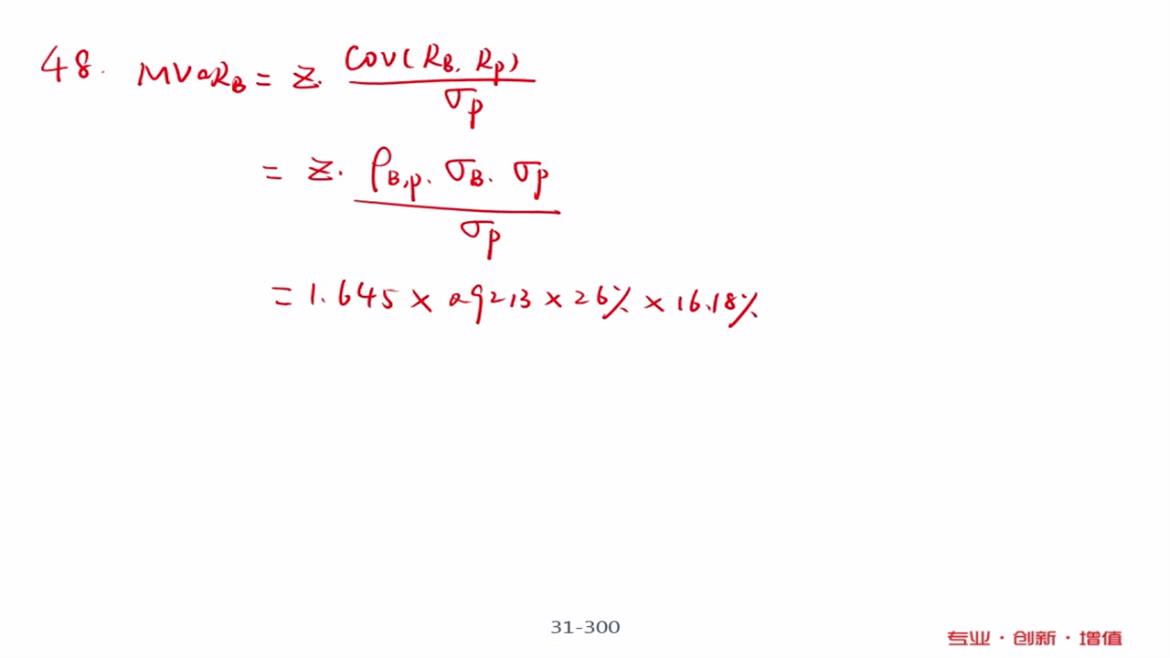 48. MVaR_B = Z. Cov(R_B, R_p) / σ_p
= Z. ρ_B,p. σ_B. σ_p / σ_p
= 1.645 × 0.9213 × 26% × 16.18%
31-300
专业·创新·增值